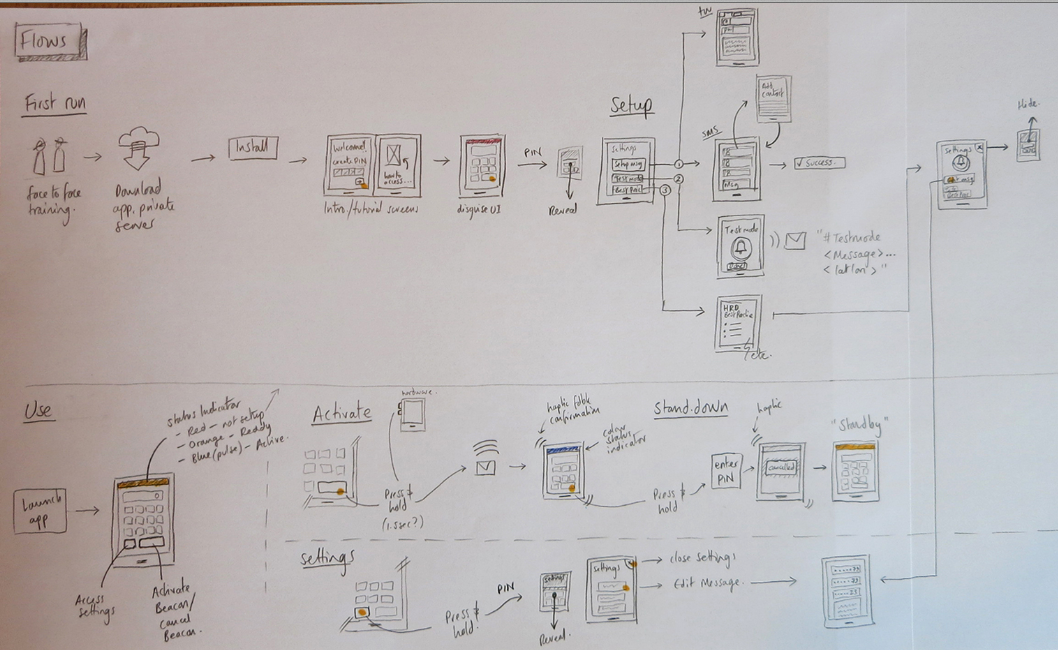 Flows
First run
Face to face
training.
Download
app, private
server
Install
Welcome!
create PIN
how to
access...
Intro/tutorial screens
disguise UI
PIN
Reveal
Setup
Settings
Setup msg
Test mode
Best Prac
1
2
3
SMS
Msg
✓ Success.
Test mode
"#Testmode
<Message>...
<lat lon>"
HRD
Best Practice
etc.
Settings
Hide.
Use
Launch
app
Status Indicator
- Red - not setup
- Orange - Ready
- Blue (pulse) - Active.
Access
settings
Activate
Beacon/
Cancel
Beacon.
Activate
hardware.
Press &
hold
(1.5sec?)
haptic fdbk
confirmation
colour
status
indicator
Stand.down
Press &
hold
enter
PIN
haptic
cancelled
"Standby"
Settings
Press &
hold.
PIN
Settings
Reveal.
Settings
close settings
Edit Message.